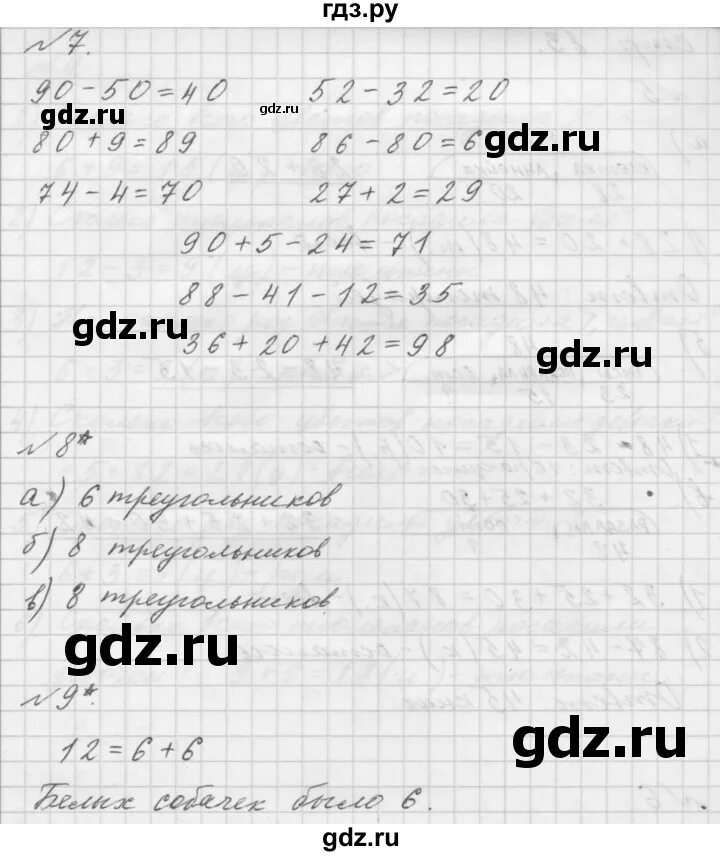 гдз.ру
№7.
90-50=40 52-32=20
gdz.ru gdz.ru
80+9=89 86-80=6
gdz.ru
74-4=70 27+2=29
90+5-24=71
88-41-12=35
gdz.ru
36+20+42=98
gdz.ru
№8*
а) 6 треугольников
б) 8 треугольников
в) 8 треугольников.
gdz.ru
№9*.
12=6+6
gdz.ru
Белых собачек было 6.
gdz.ru